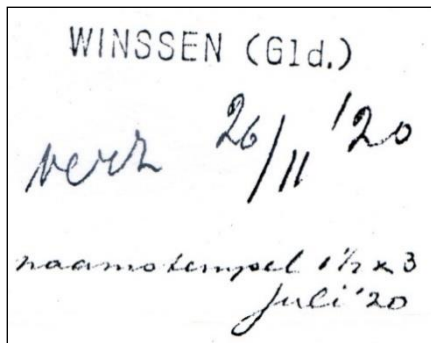 WINSSEN (Gld.)
verz 26/11 '20
naamstempel 1½ x 3
Juli '20